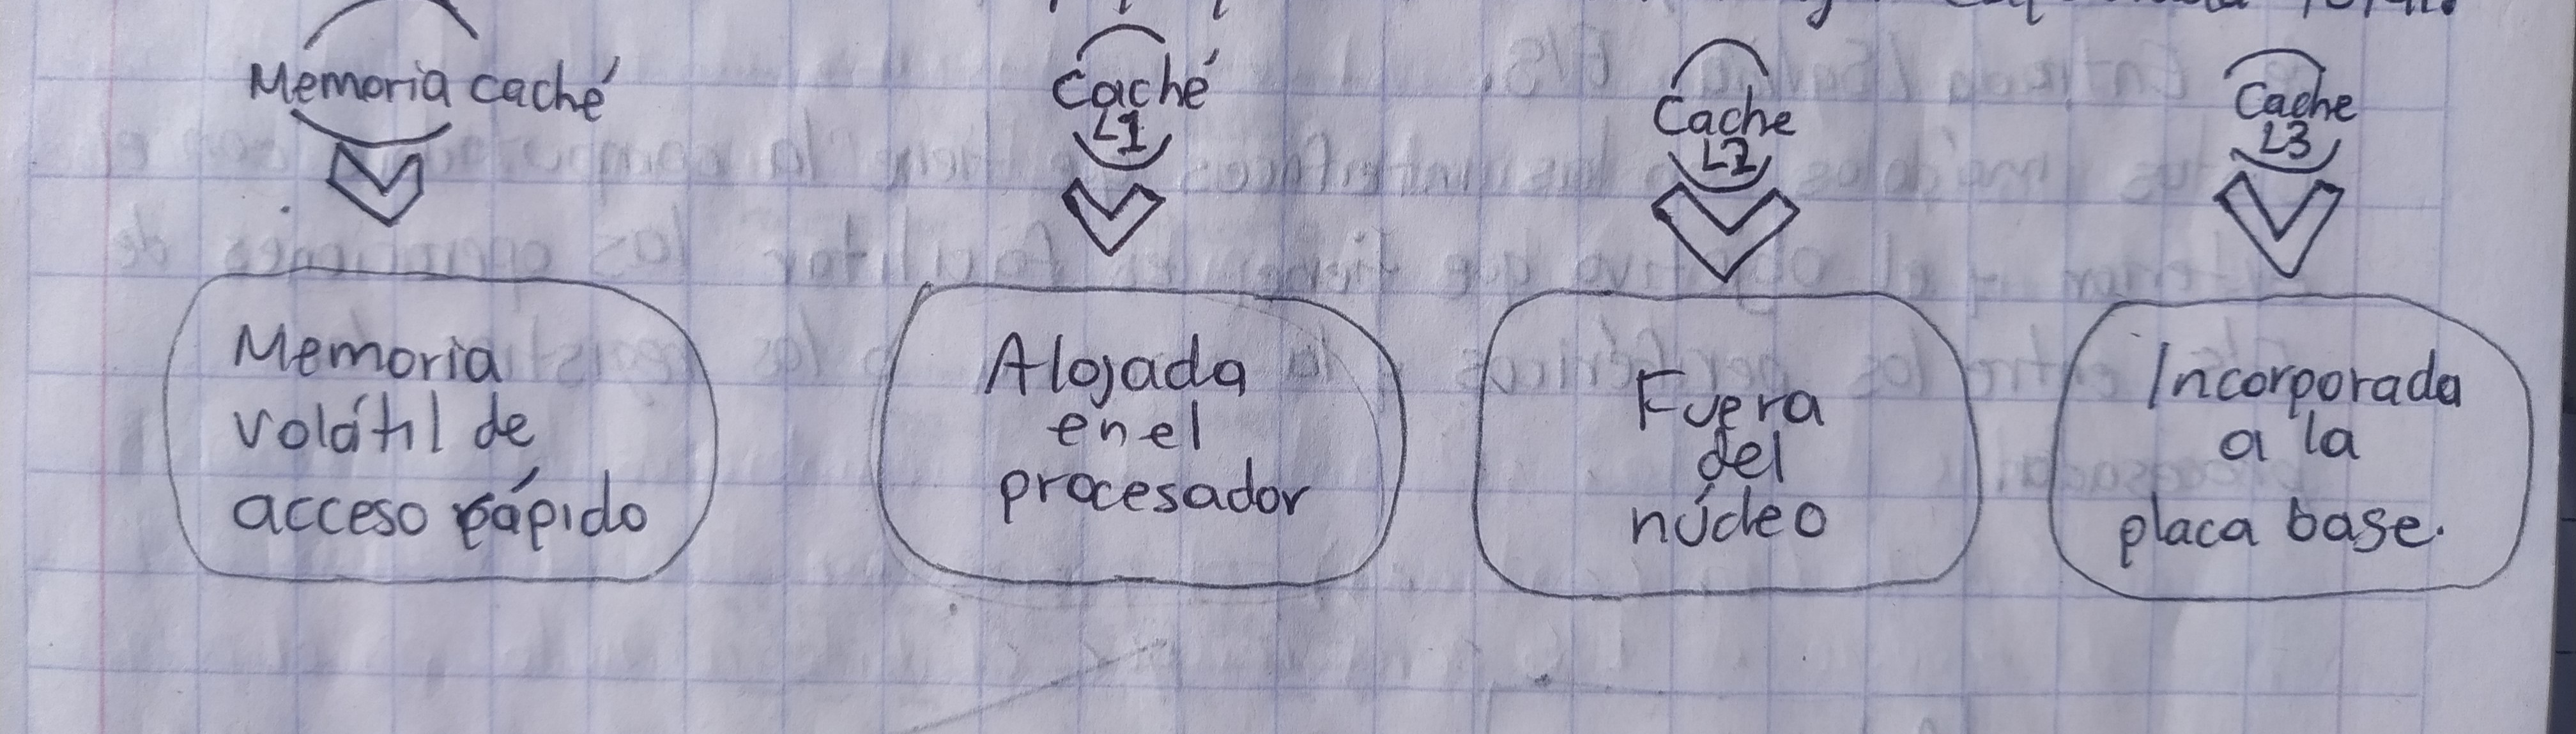 Memoria caché
Memoria
volátil de
acceso rápido
Caché
L1
Alojada
en el
procesador
Cache
L2
Fuera
del
núcleo
Cache
L3
Incorporada
a la
placa base.